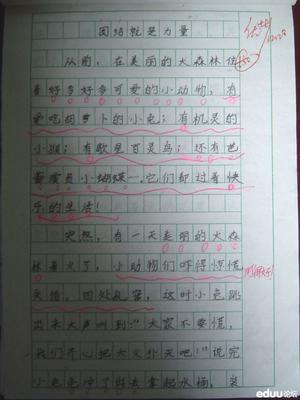 团结就是力量
从前，在美丽的大森林住
着好多好多可爱的小动物，有
爱吃胡萝卜的小兔；有机灵的
小猴；有歌星百灵鸟；还有芭
蕾演员小蝴蝶…它们都过着快
乐的生活！
突然，有一天美丽的大森
林着火了，小动物们吓得惊慌
失措，四处乱窜，这时小兔跳
出来大声叫到："大家不要慌，
我们齐心把大火扑灭吧！"说完
小兔
拿起水桶，装
eduu论坛